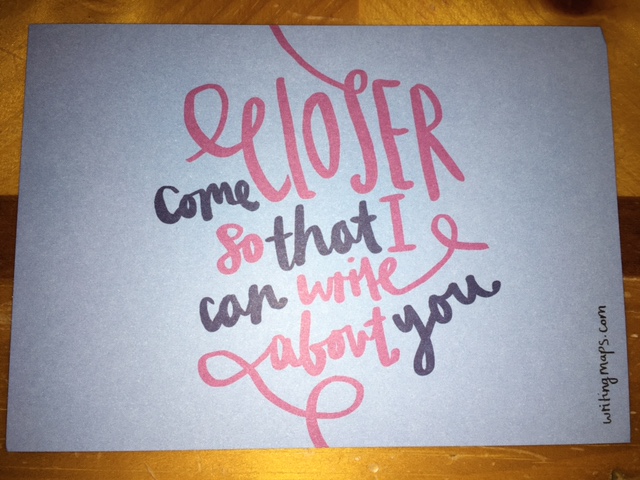 come CLOSER
so that I
can write
about you
writingmaps.com